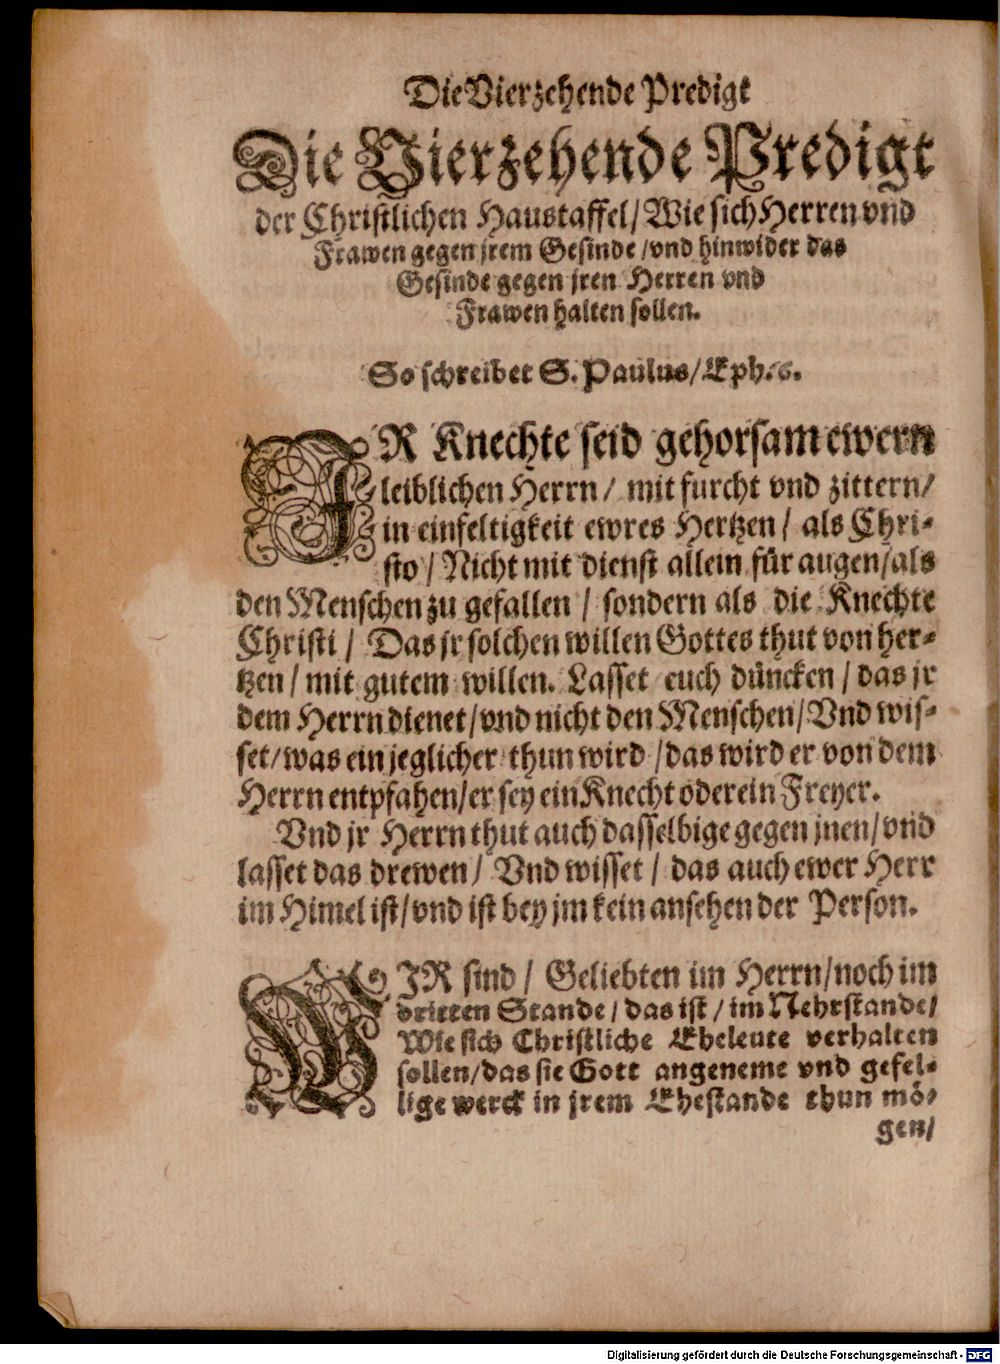 Die Vierzehende Predigt
Die Vierzehende Predigt
der Christlichen Haustaffel/ Wie sich Herren vnd
Frawen gegen jrem Gesinde/ vnd hinwider das
Gesinde gegen jren Herren vnd
Frawen halten sollen.
So schreibet S. Paulus/ Eph. 6.
IR Knechte seid gehorsam ewern
leiblichen Herrn/ mit furcht vnd zittern/
in einfeltigkeit ewres Hertzen/ als Chri-
sto/ Nicht mit dienst allein für augen/ als
den Menschen zu gefallen/ sondern als die Knechte
Christi/ Das jr solchen willen Gottes thut von her-
tzen/ mit gutem willen. Lasset euch düncken/ das jr
dem Herrn dienet/ vnd nicht den Menschen/ Vnd wis-
set/ was ein jeglicher thun wird/ das wird er von dem
Herrn entpfahen/ er sey ein Knecht oder ein Freyer.
Vnd jr Herrn thut auch dasselbige gegen jnen/ vnd
lasset das drewen/ Vnd wisset/ das auch ewer Herr
im Himel ist/ vnd ist bey jm kein ansehen der Person.
WIR sind/ Geliebten im Herrn/ noch im
dritten Stande/ das ist/ im Nehrstande/
Wie sich Christliche Eheleute verhalten
sollen/ das sie Gott angeneme vnd gefel-
lige werck in jrem Ehestande thun mö-
gen/
Digitalisierung gefördert durch die Deutsche Forschungsgemeinschaft - DFG